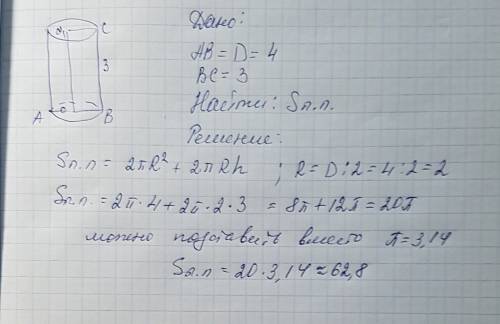 Дано:
C
AB = D = 4
3
BC = 3
Найти: Sп.п.
A
O
B
Решение:
Sп.п = 2πR² + 2πRh ; R = D:2 = 4:2 = 2
Sп.п. = 2π·4 + 2π·2·3 = 8π + 12π = 20π
можно подставить вместо π = 3,14
Sп.п = 20·3,14 ≈ 62,8